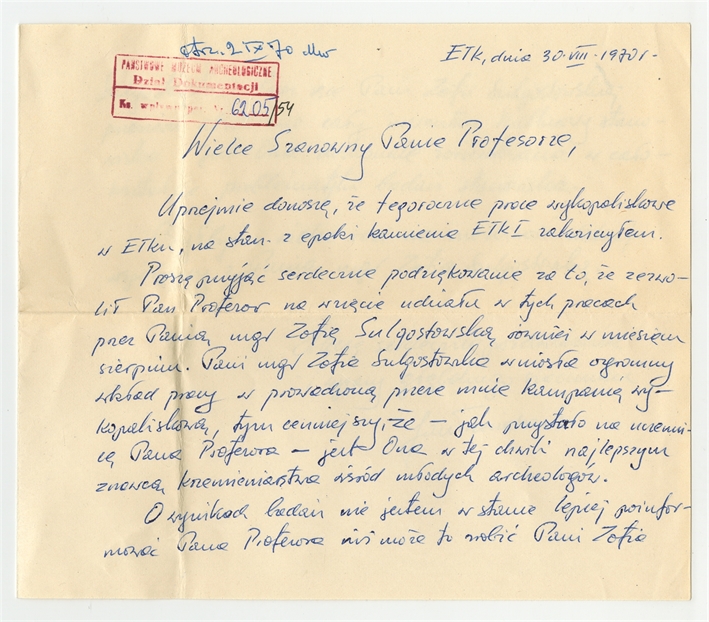 otrz. 2 IX 70 Mw
Ełk, dnia 30·VIII·1970r-
PAŃSTWOWE MUZEUM ARCHEOLOGICZNE
Dział Dokumentacji
Ks. 6205/54
Wielce Szanowny Panie Profesorze,
Uprzejmie donoszę, że tegoroczne prace wykopaliskowe
w Ełku, na stan. z epoki kamienia Ełk I zakończyłem.
Proszę przyjąć serdeczne podziękowanie za to, że zezwo-
lił Pan Profesor na wzięcie udziału w tych pracach
przez Panią mgr Zofię Sulgostowską również w miesiącu
sierpniu. Pani mgr Zofia Sulgostowska wniosła ogromny
wkład pracy w prowadzoną przeze mnie kampanię wy-
kopaliskową, tym cenniejszy iże – jak przystało na uczenni-
cę Pana Profesora – jest Ona w tej chwili najlepszym
znawcą krzemieniarstwa wśród młodych archeologów.
O wynikach badań nie jestem w stanie lepiej poinfor-
mować Pana Profesora niż może to zrobić Pani Zofia